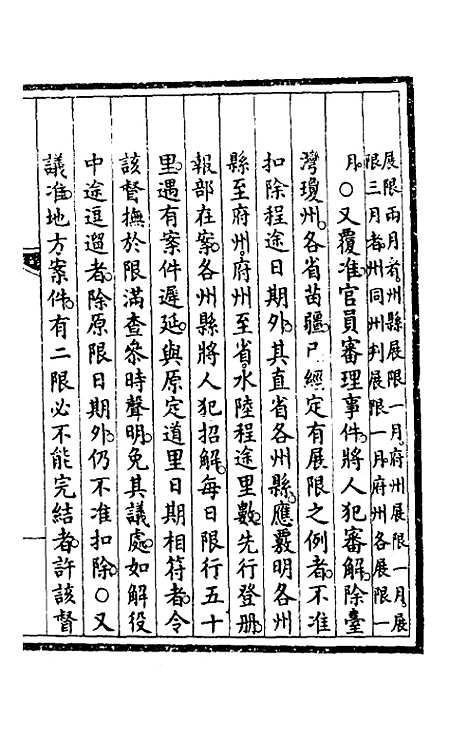 展限兩月者州縣展限一月府州展限一月展
限三月者州同州判展限一月府州各展限一
月○又覆准官員審理事件將人犯審解除臺
灣瓊州各省苗疆已經定有展限之例者不准
扣除程途日期外其直省各州縣應覈明各州
縣至府州府州至省水陸程途里數先行登冊
報部在案各州縣將人犯招解每日限行五十
里遇有案件遲延與原定道里日期相符者令
該督撫於限滿查參時聲明免其議處如解役
中途逗遛者除原限日期外仍不准扣除○又
議准地方案件有二限必不能完結者許該督